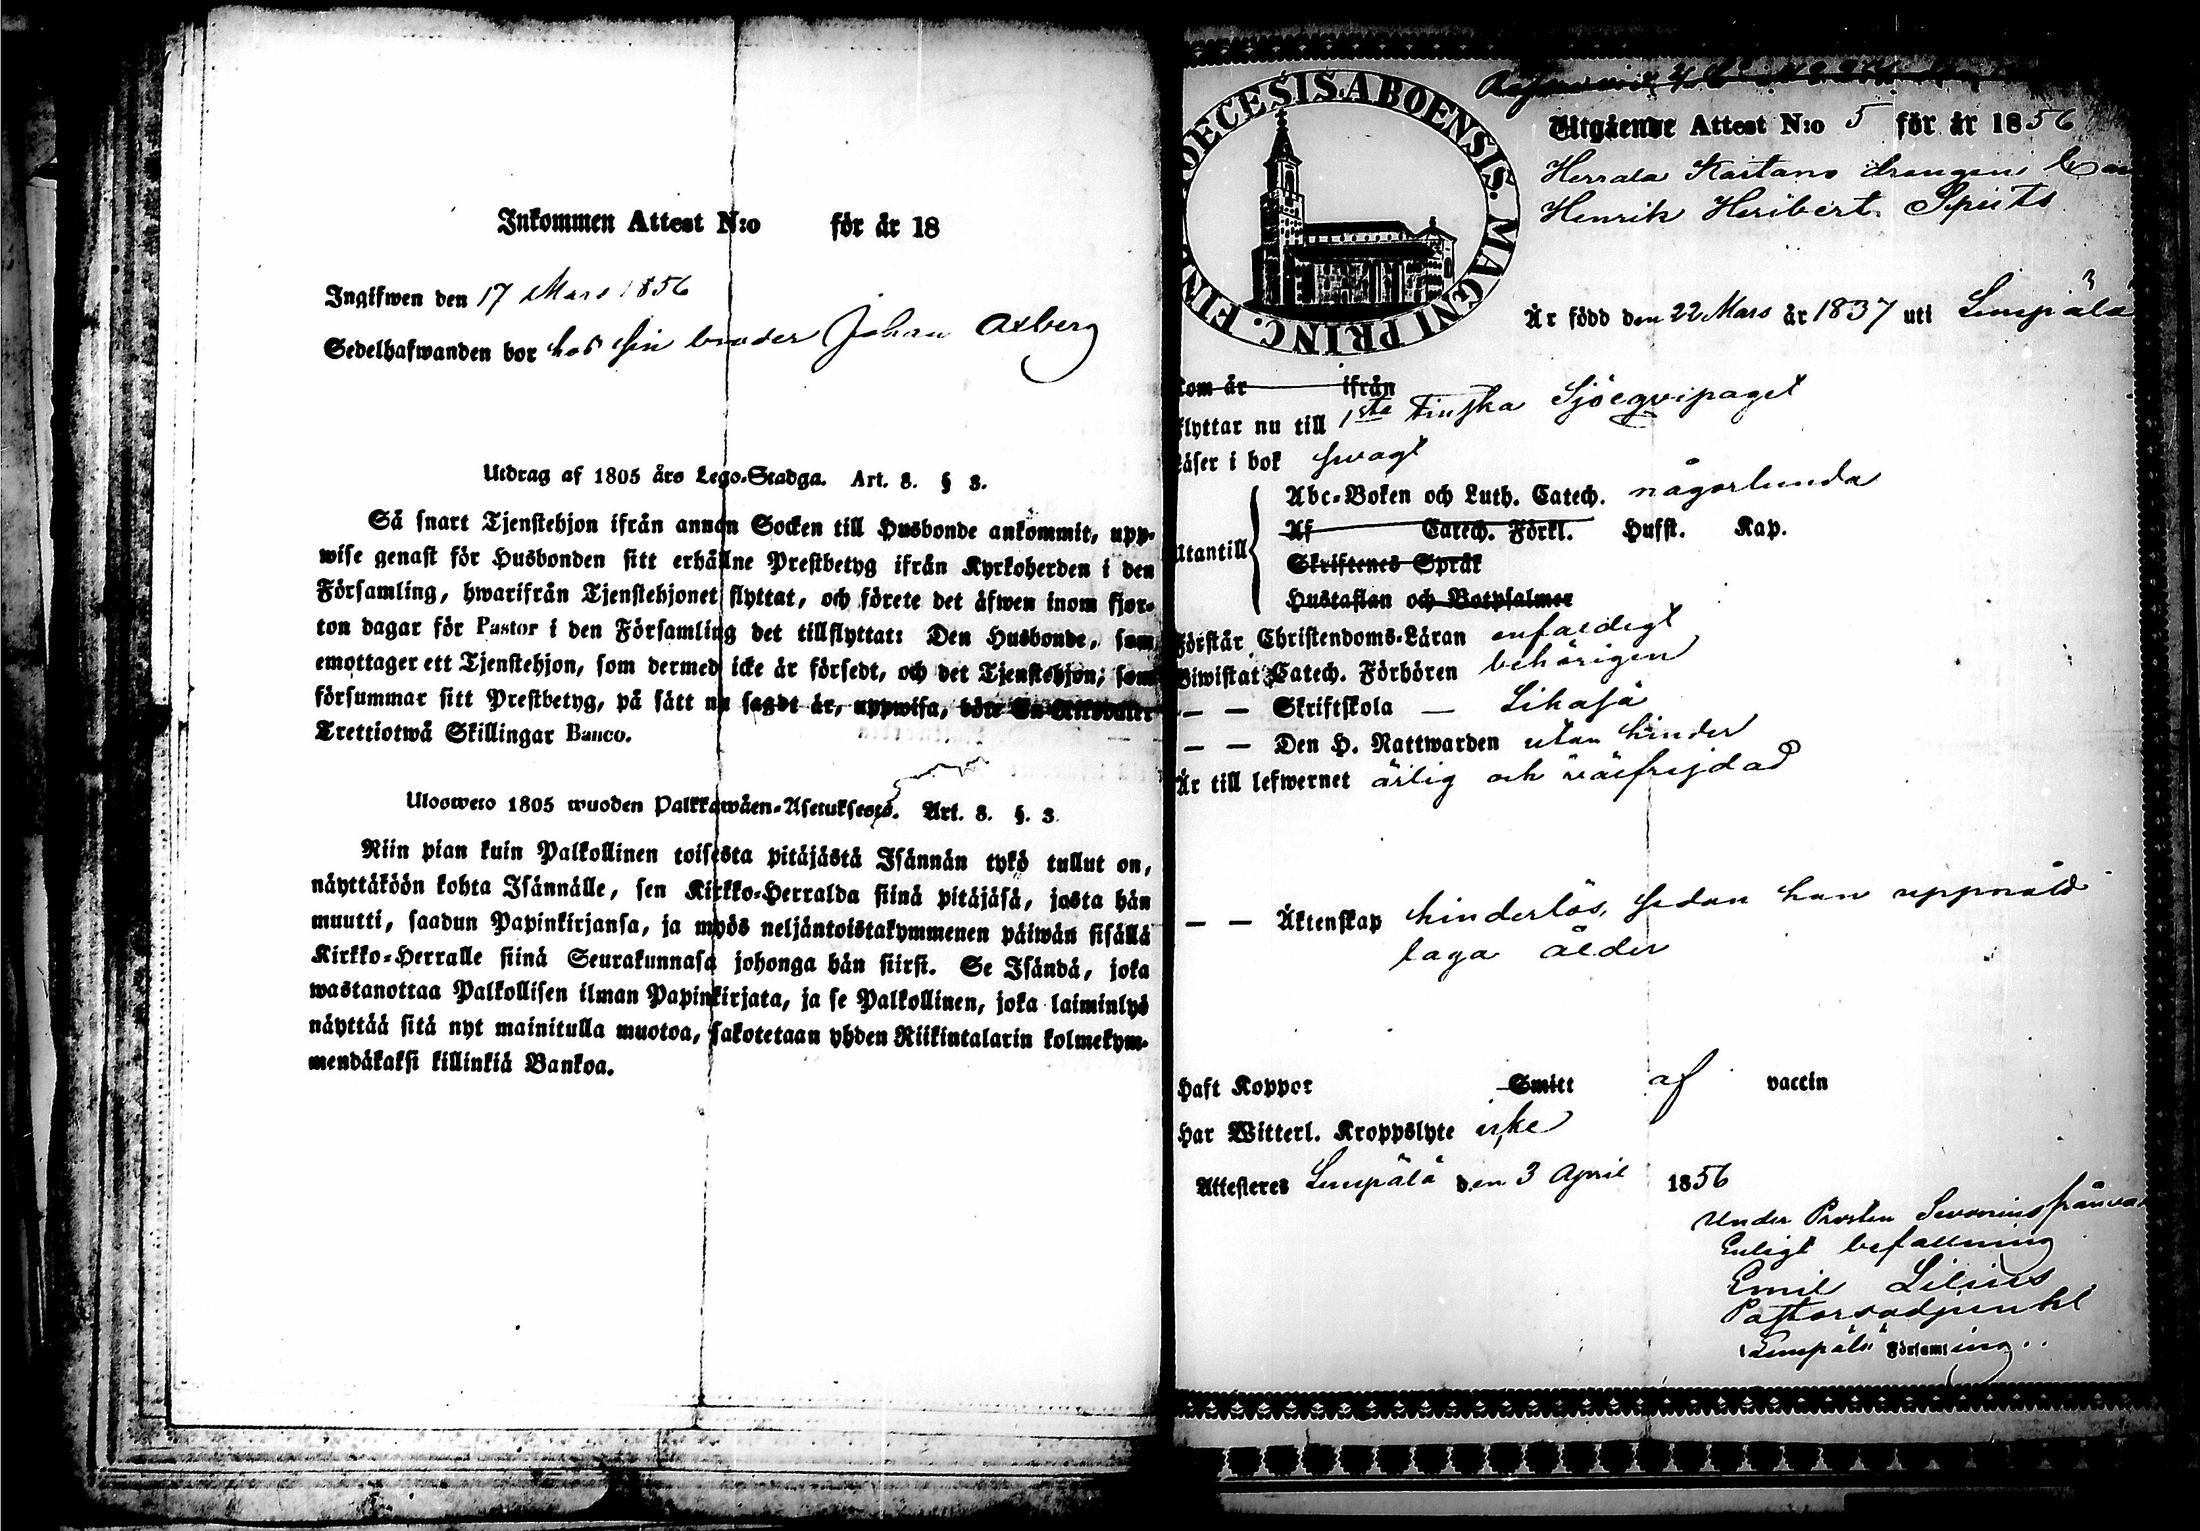 Inkommen Attest N:o för år 18
Ingifwen den 17 Mars 1856
Sedelhafwanden bor hos sin broder Johan Axberg
Utdrag af 1805 års Lego-Stadga. Art. 8. § 3.
Så snart Tjenstehjon ifrån annan Socken till Husbonde ankommit, upp-
wise genast för Husbonden sitt erhållne Prestbetyg ifrån Kyrkoherden i den
Församling, hwarifrån Tjenstehjonet flyttat, och förete det äfwen inom fjor-
ton dagar för Pastor i den Församling det tillflyttat: Den Husbonde, som
emottager ett Tjenstehjon, som dermed icke är försedt, och det Tjenstehjon, som
försummar sitt Prestbetyg, på sätt nu sagdt är, uppwisa, böte En Riksdaler
Trettiotwå Skillingar Banco.
Ulosweto 1805 wuoden Palkkawäen-Asetuksesta. Art. 8. §. 3.
Niin pian kuin Palkollinen toisesta pitäjästä Isännän tykö tullut on,
näyttäköön kohta Isännälle, sen Kirkko-Herralda siinä pitäjäsä, josta hän
muutti, saadun Papinkirjansa, ja myös neljäntoistakymmenen päiwän sisällä
Kirkko-Herralle siinä Seurakunnasa johonga hän siirsi. Se Isändä, joka
wastanottaa Palkollisen ilman Papinkirjata, ja se Palkollinen, joka laiminlyö
näyttää sitä nyt mainitulla muotoa, sakotetaan yhden Riikintalarin kolmekym-
mendäkaksi killinkiä Bankoa.
DIOECESIS ABOENSIS. MAGNI PRINC. FIN
Utgående Attest N:o 5 för år 1856
Herrala Kartano drängen
Henrik Heribert Spets
Är född den 22 Mars år 1837 uti Lempälä
kom år ifrån
flyttar nu till 1sta Finska Sjöeqvipaget
Läser i bok swagt
Abc-Boken och Luth. Catech. någorlunda
Af Catech. Förkl. Husst. Kap.
Utantill
Skriftenes Språk
Hustaflan och Botpsalmer
Förstår Christendoms-Läran enfaldigt
Biwistat Catech. Förhören behörigen
— — Skriftskola — Likaså
— — Den H. Nattwarden utan hinder
Är till lefwernet ärlig och wälfrejdad
— — Äktenskap hinderlös, sedan han uppnåld
laga ålder
Haft Koppor Smitt af vaccin
Har Witterl. Kroppslyte icke
Attesteres Lempälä den 3 April 1856
Under Prosten frånva
Enligt befallning
Emil Lilius
Pastorsadjunkt
Lempälä Församling